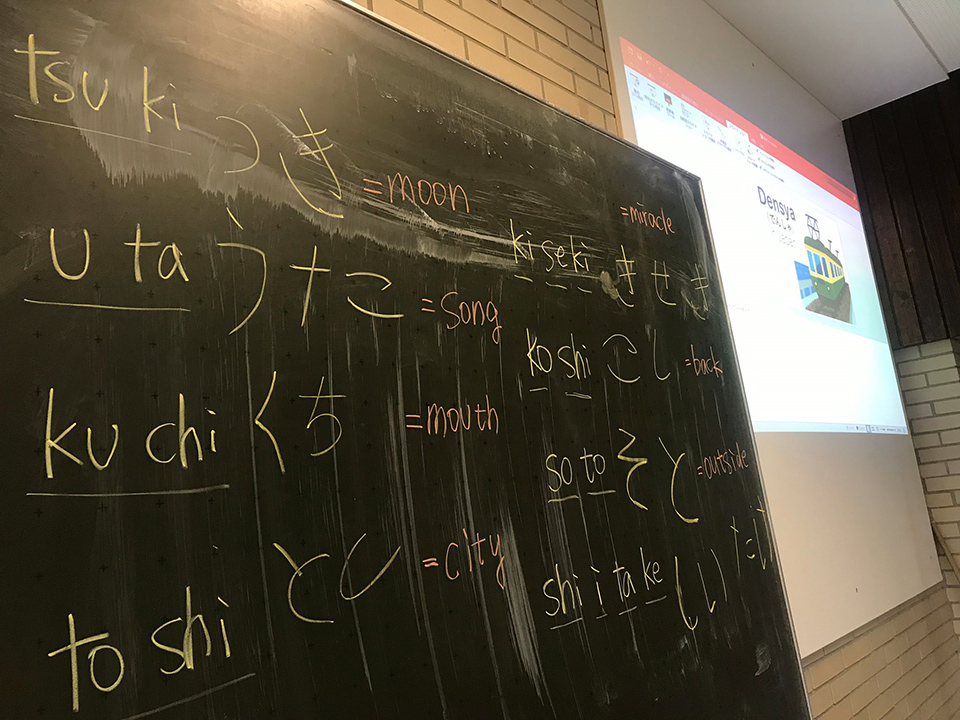 tsuki つき =moon
uta うた =song
kuchi くち =mouth
toshi とし =city
=miracle
kiseki きせき
koshi こし =back
soto そと =outside
shiitake しいたけ
Densya
(でんしゃ)